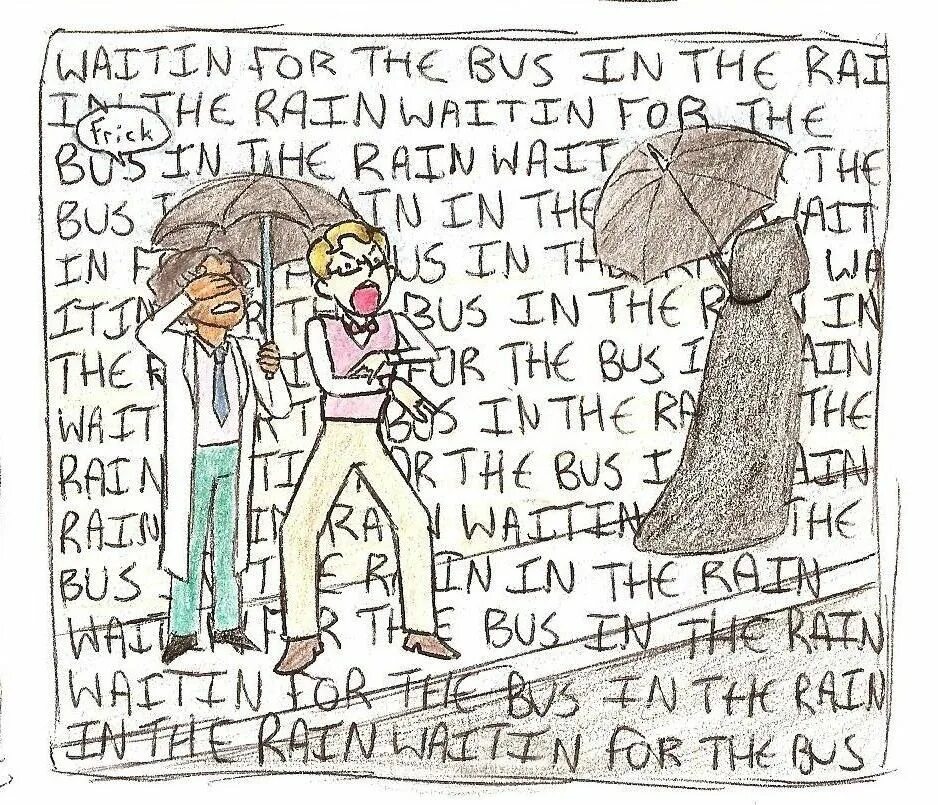 WAITIN FOR THE BUS IN THE RAI
IN THE RAIN WAITIN FOR THE
Frick
BUS IN THE RAIN WAIT THE
BUS IN THE WAIT
IN US IN WA
ITIN BUS IN THE IN
THE THE BUS AIN
WAIT BUS IN THE RA THE
RAIN OR THE BUS AIN
RAIN IN RA WAITIN THE
BUS IN IN THE RAIN
BUS IN THE RAIN
WAITIN FOR THE BUS IN THE RAIN
IN THE RAIN WAITIN FOR THE BUS